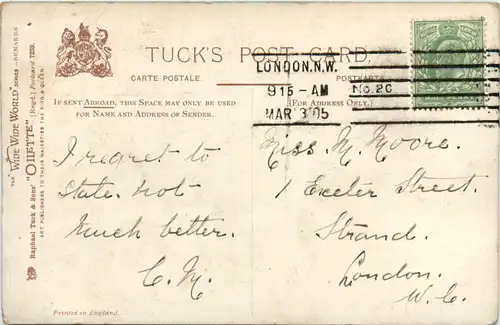 TUCK'S POST CARD
CARTE POSTALE. POSTKARTE.
IF SENT ABROAD, THIS SPACE MAY ONLY BE USED
FOR NAME AND ADDRESS OF SENDER.
(FOR ADDRESS ONLY.)
THE "WIDE WIDE WORLD" SERIES —BENARES
Raphael Tuck & Sons' "OILETTE" [Regd.] Postcard 7239.
ART PUBLISHERS TO THEIR MAJESTIES THE KING & QUEEN.
LONDON.N.W.
915-AM
MAR 3 '05
No. 20
I regret to
state. not
much better.
C. M.
Miss. M. Moore.
1 Exeter Street.
Strand.
London.
W. C.
Printed in England.